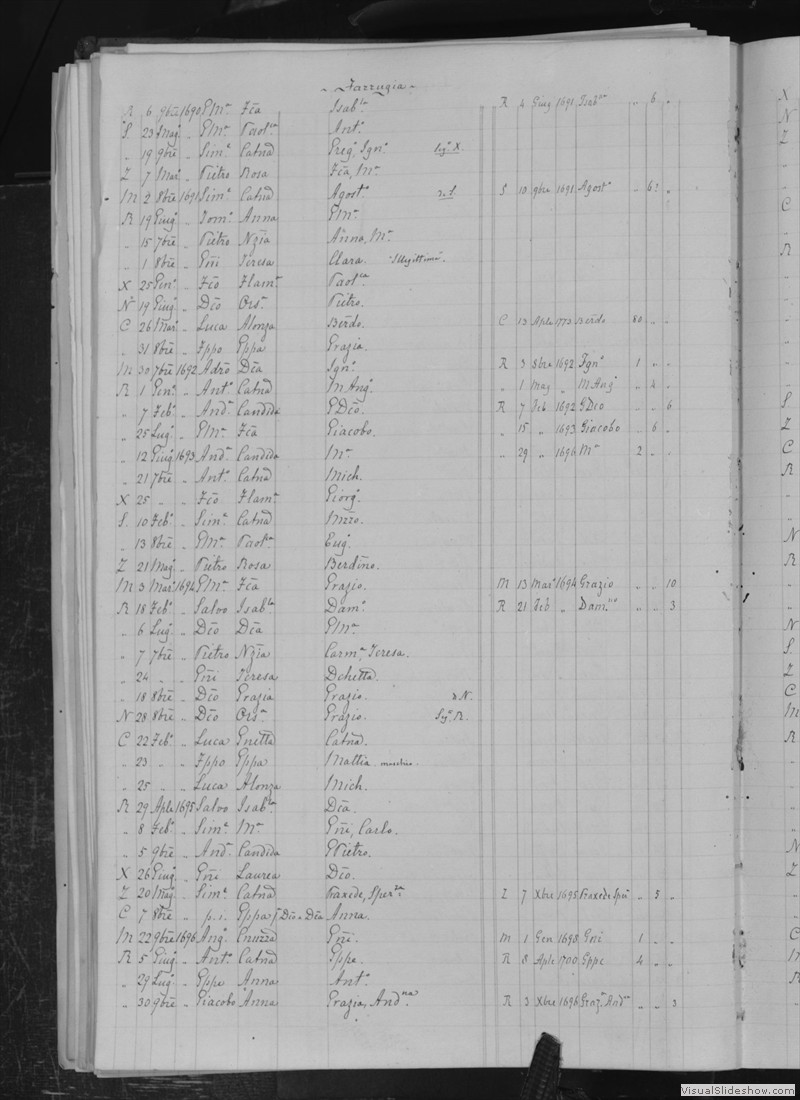 Farrugia
R 6 9bre 1690 GMa Fca Isabla R 4 Giug 1691 Isabla „ 6 „
S 23 Mago „ GMa Paolca Anto
„ 19 9bre „ Sime Catna Grego, Igno Lyo X.
Z 7 Maro „ Pietro Rosa Fca, Ma
M 2 8bre 1691 Sime Catna Agosta S 10 9bre 1691 Agosta „ 6 „
R 19 Giugo „ Domo Anna GMa
„ 15 7bre „ Pietro Nzia Anna, Ma
„ 1 8bre „ Gni Teresa Clara. Illegittima.
X 25 Geno „ Fco Flama Paolca
N 19 Giugo „ Dco Orsa Pietro.
C 26 Maro „ Luca Alonza Berdo. C 13 Aple 1773 Berdo 80 „ „
„ 31 8bre „ Fppo Gppa Grazia.
M 30 7bre 1692 Adro Dca Igno R 3 8bre 1692 Igno 1 „ „
R 1 Geno „ Anto Catna M Anga „ 1 Mag „ M Anga „ 4 „
„ 7 Febo „ Anda Candida GDco. R 7 Feb 1692 GDco „ „ 6
„ 25 Lugo „ GMa Fca Giacobo. „ 15 „ 1693 Giacobo „ 6 „
„ 12 Giugo 1693 Anda Candida Ma „ 29 „ 1696 Ma 2 „ „
„ 21 7bre „ Anto Catna Mich.
X 25 „ „ Fco Flama Giorgo.
S 10 Febo „ Sime Catna Mzio.
„ 13 8bre „ GMa Paola Eugo
Z 21 Mago „ Pietro Rosa Berdino.
M 3 Maro 1694 GMa Fca Grazio. M 13 Maro 1694 Grazio „ „ 10
R 18 Febo „ Salvo Isabla Damo R 21 Feb „ Damno „ „ 3
„ 6 Lugo „ Dco Dca GMa
„ 7 7bre „ Pietro Nzia Carma, Teresa.
„ 24 „ „ Gni Teresa Dchetta.
„ 18 8bre „ Dco Grazia Grazio. N.
N 28 8bre „ Dco Orsa Grazio. Lyo R.
C 22 Febo „ Luca Gnetta Catna.
„ 23 „ „ Fppo Gppa Mattia maschio.
„ 25 „ „ Luca Alonza Mich.
R 29 Aple 1695 Salvo Isabla Dca.
„ 8 Febo „ Sime Ma Gni, Carlo.
„ 5 9bre „ Anda Candida GPietro.
X 26 Giugo „ Gni Laurea Dco.
Z 20 Mago „ Sime Catna Praxede, Sperza Z 7 Xbre 1695 Praxede Sper „ 5 „
C 7 8bre „ p. i. Gppa f Dco e Dca Anna.
M 22 9bre 1696 Ango Cnuzza Gni. M 1 Gen 1698 Gni 1 „ „
R 5 Giugo „ Anto Catna Gppe. R 8 Aple 1700 Gppe 4 „ „
„ 29 Lugo „ Gppe Anna Anto
„ 30 9bre „ Giacobo Anna Grazia, Andna R 3 Xbre 1696 Graza Andna „ „ 3
VisualSlideshow.com